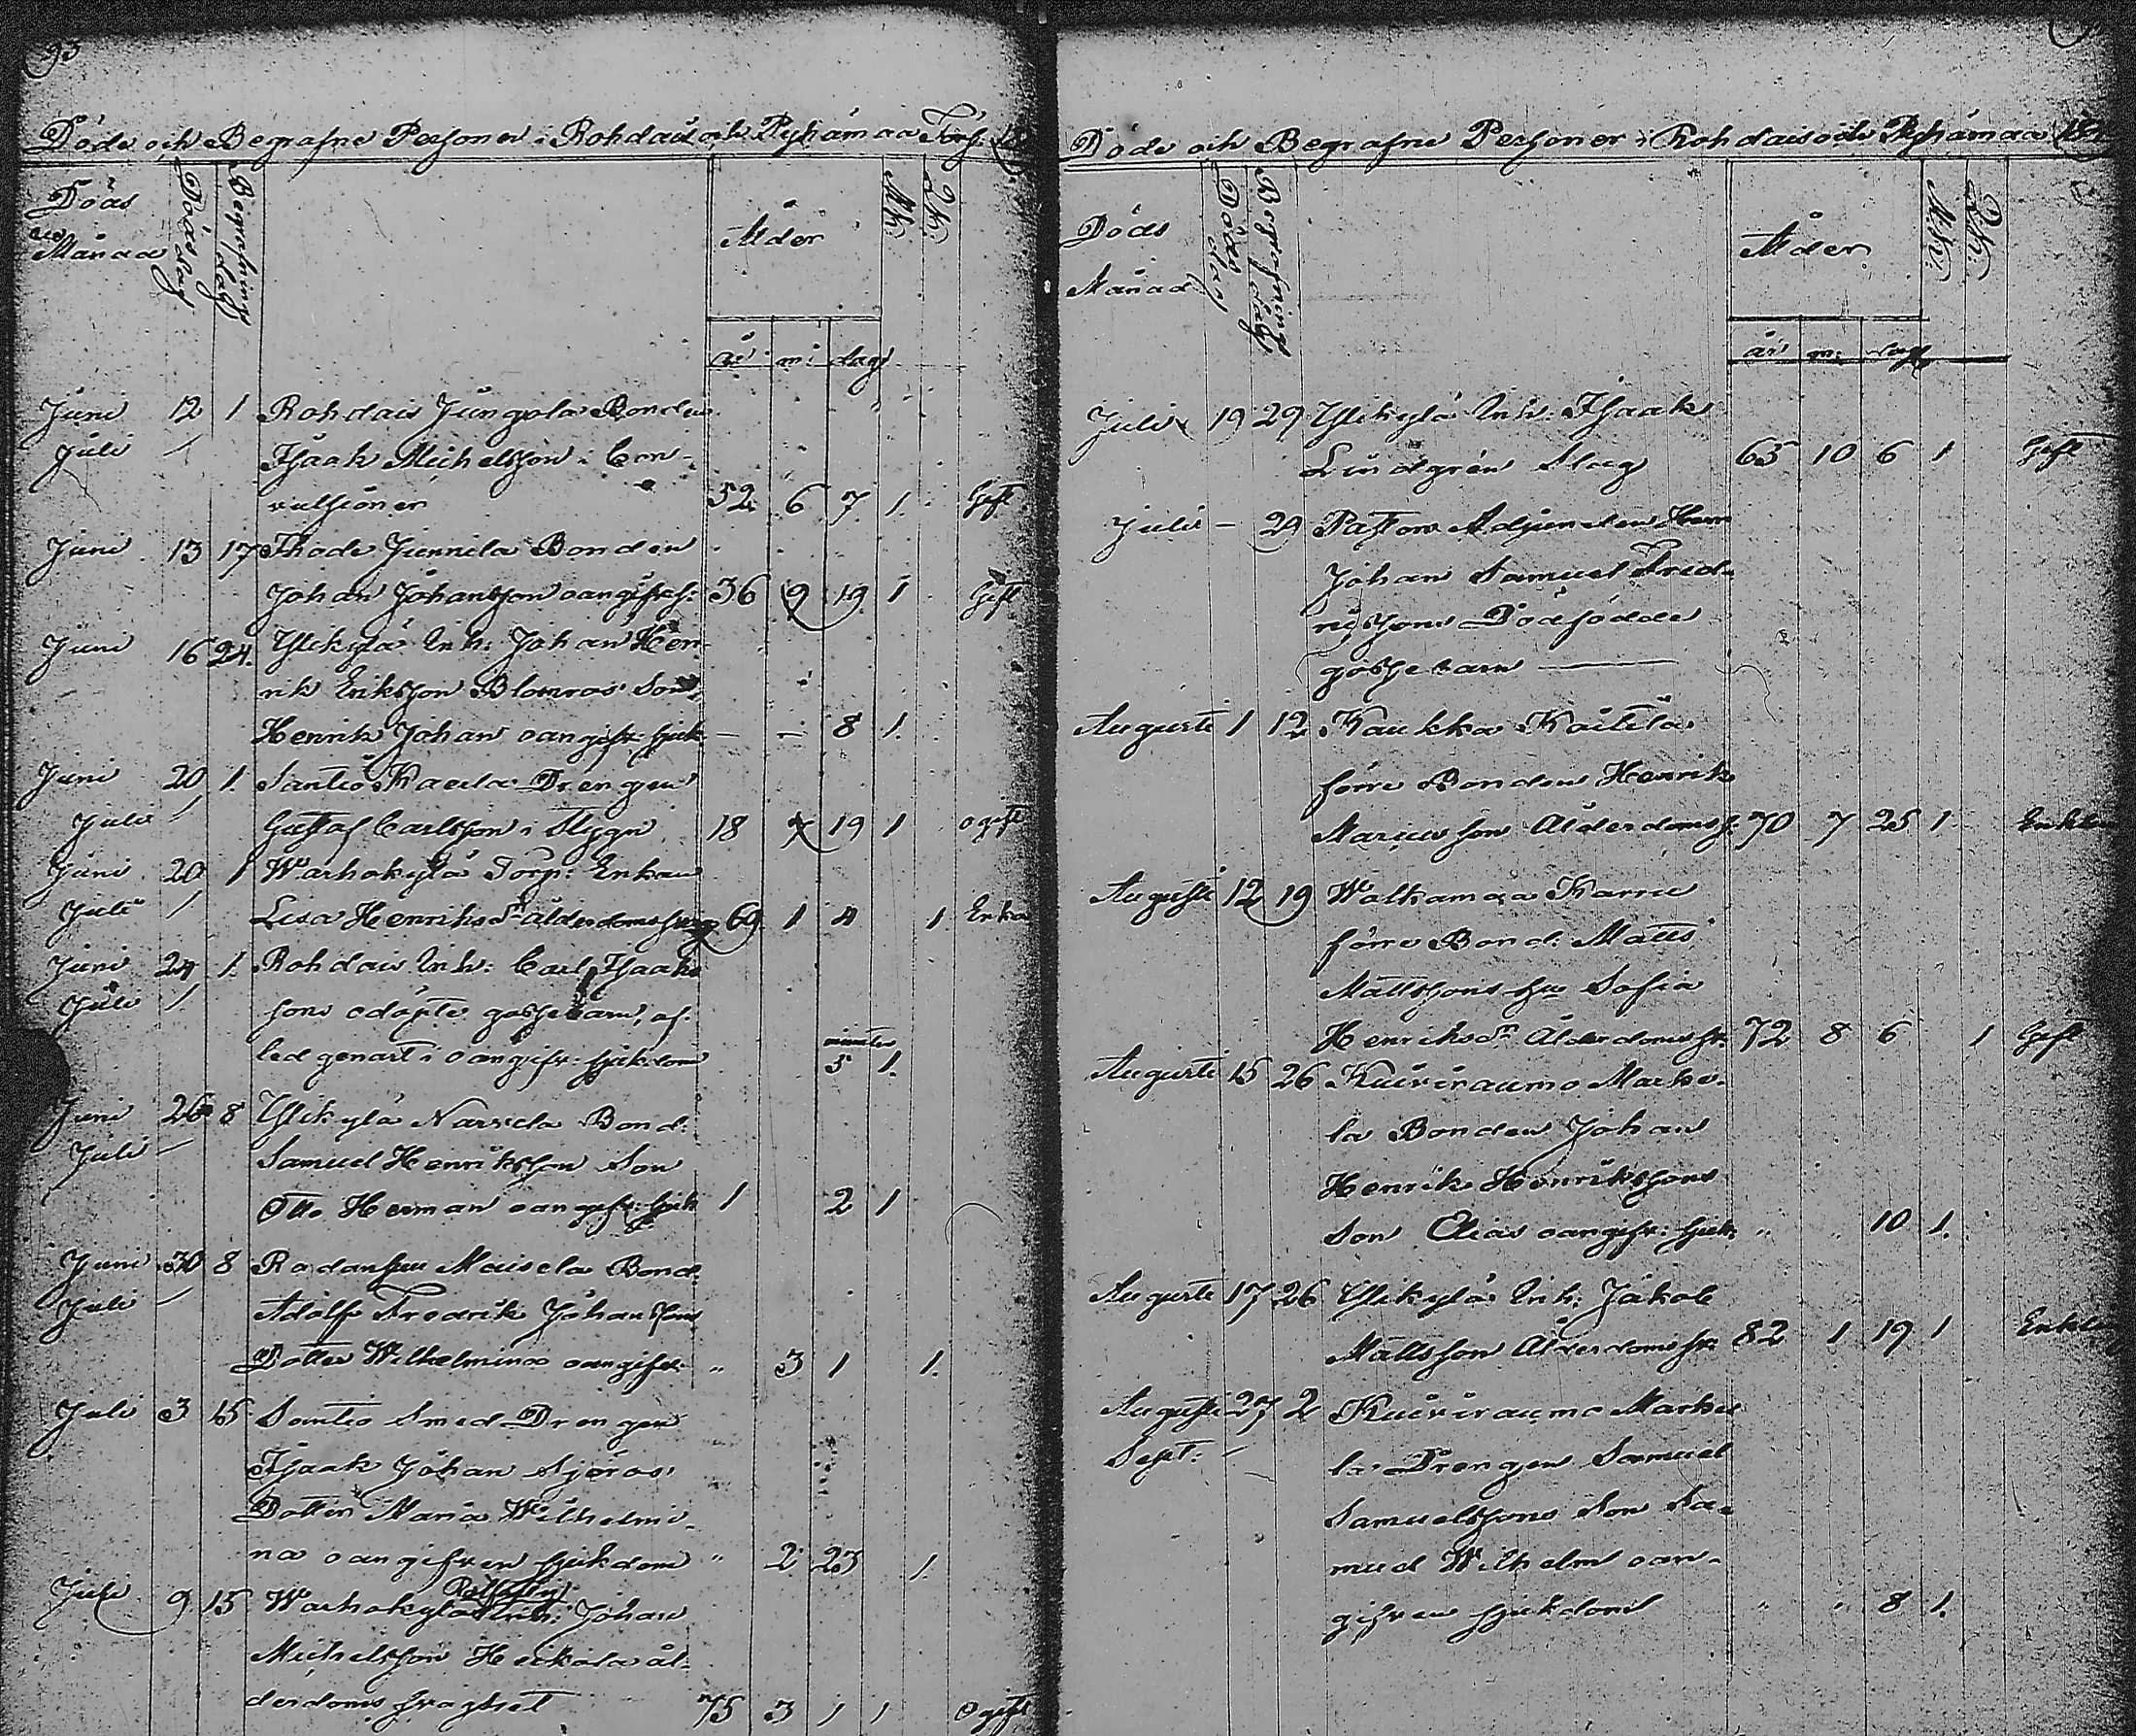 93
Döde och Begrafne Personer i Rohdais och Pyhämaa Förs:
Döds Månad
Dödsdag
Begrafnings dag
Ålder
M.K.
Q.K.
år m: dag
Juni 12 1 Rohdais Jungola Bonden
Juli Isaak Michelsson i Con-
vulsioner 52 6 7 1. Gift
Juni 13 17 Ihode Junnila Bonden
Johan Johansson oangifvs: 36 9 19 1 Gift
Juni 16 24. Ylikylä Inh: Johan Hen-
rik Eriksson Blomros Son
Henrik Johan oangifv: sjuk — — 8 1.
Juni 20 1. Santio Kaela Drengen
Juli Gustaf Carlsson i Flygn 18 19 1 ogift
Juni 20 1 Warhokylä Torp: Enkan
Juli Lisa Henriksdr ålderdoms 69 1 4 1. Enka
Juni 24 1. Rohdais Inh: Carl Isaaks
Juli sons odöpte gossebarn, af-
led genast i oangifv: sjukdom minuter 5 1.
Juni 26 8 Ylikylä Narvila Bond:
Juli Samuel Henriksson Son
Otto Herman oangifv: sjuk 1 2 1
Juni 30 8 Radansuu Maisela Bond.
Juli Adolf Fredrik Johanssons
Dotter Wilhelmina oangifv: " 3 1 1.
Juli 3 15 Santio Smed Drengen
Isaak Johan Sjöros
Dotter Maria Wilhelmi-
na oangifven sjukdom " 2 23 1.
Juli 9 15 Warhokylä Inh: Johan
Michelsson Heikola ål-
derdoms svaghet 75 3 1 1 Ogift
Döde och Begrafne Personer i Rohdais och Pyhämaa
Döds Månad
Döds dag
Begrafnings dag
Ålder
M.K.
Q.K.
år m: dag
Juli 19 29 Ylikylä Inh: Isaak
Lindgrén Slag 65 10 6 1 Gift
Juli — 29 Pastors Adjuncten Herr
Johan Samuel Fred-
ricssons Dödfödde
gossebarn —
Augusti 1 12 Kaukka Kaitila
förre Bonden Henrik
Mariusson Ålderdoms: 70 7 25 1. Enkling
Augusti 12 19 Walkamaa Karru
förre Bond: Matts
Mattssons hu Sofia
Henriksdr Ålderdoms sv: 72 8 6 1 Gift
Augusti 15 26 Kuivirauma Marke-
la Bonden Johan
Henrik Henrikssons
Son Elias oangifv: sjuk: " " 10 1.
Augusti 17 26 Ylikylä Inh: Jakob
Mattsson Ålderdoms sv: 82 1 19 1 Enkling
Augusti 27 2 Kuivirauma Marke
Sept: la Drengen Samuel
Samuelssons Son Sa-
muel Wilhelm oan-
gifven sjukdom " " 8 1.